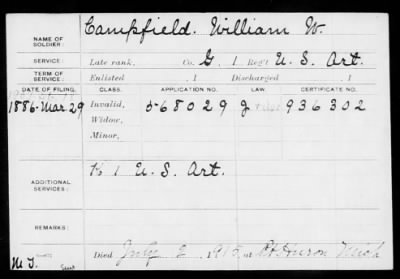 NAME OF SOLDIER: Campfield, William W.
SERVICE: Late rank, Co. G, 1 Reg't U. S. Art.
TERM OF SERVICE: Enlisted , 1 Discharged , 1
DATE OF FILING. CLASS. APPLICATION NO. LAW. CERTIFICATE NO.
1886. Mar. 29 Invalid, 568029 J 936302
Widow,
Minor,
ADDITIONAL SERVICES: K 1 U. S. Art.
REMARKS:
Died July 2, 1913, at Pt Huron Mich